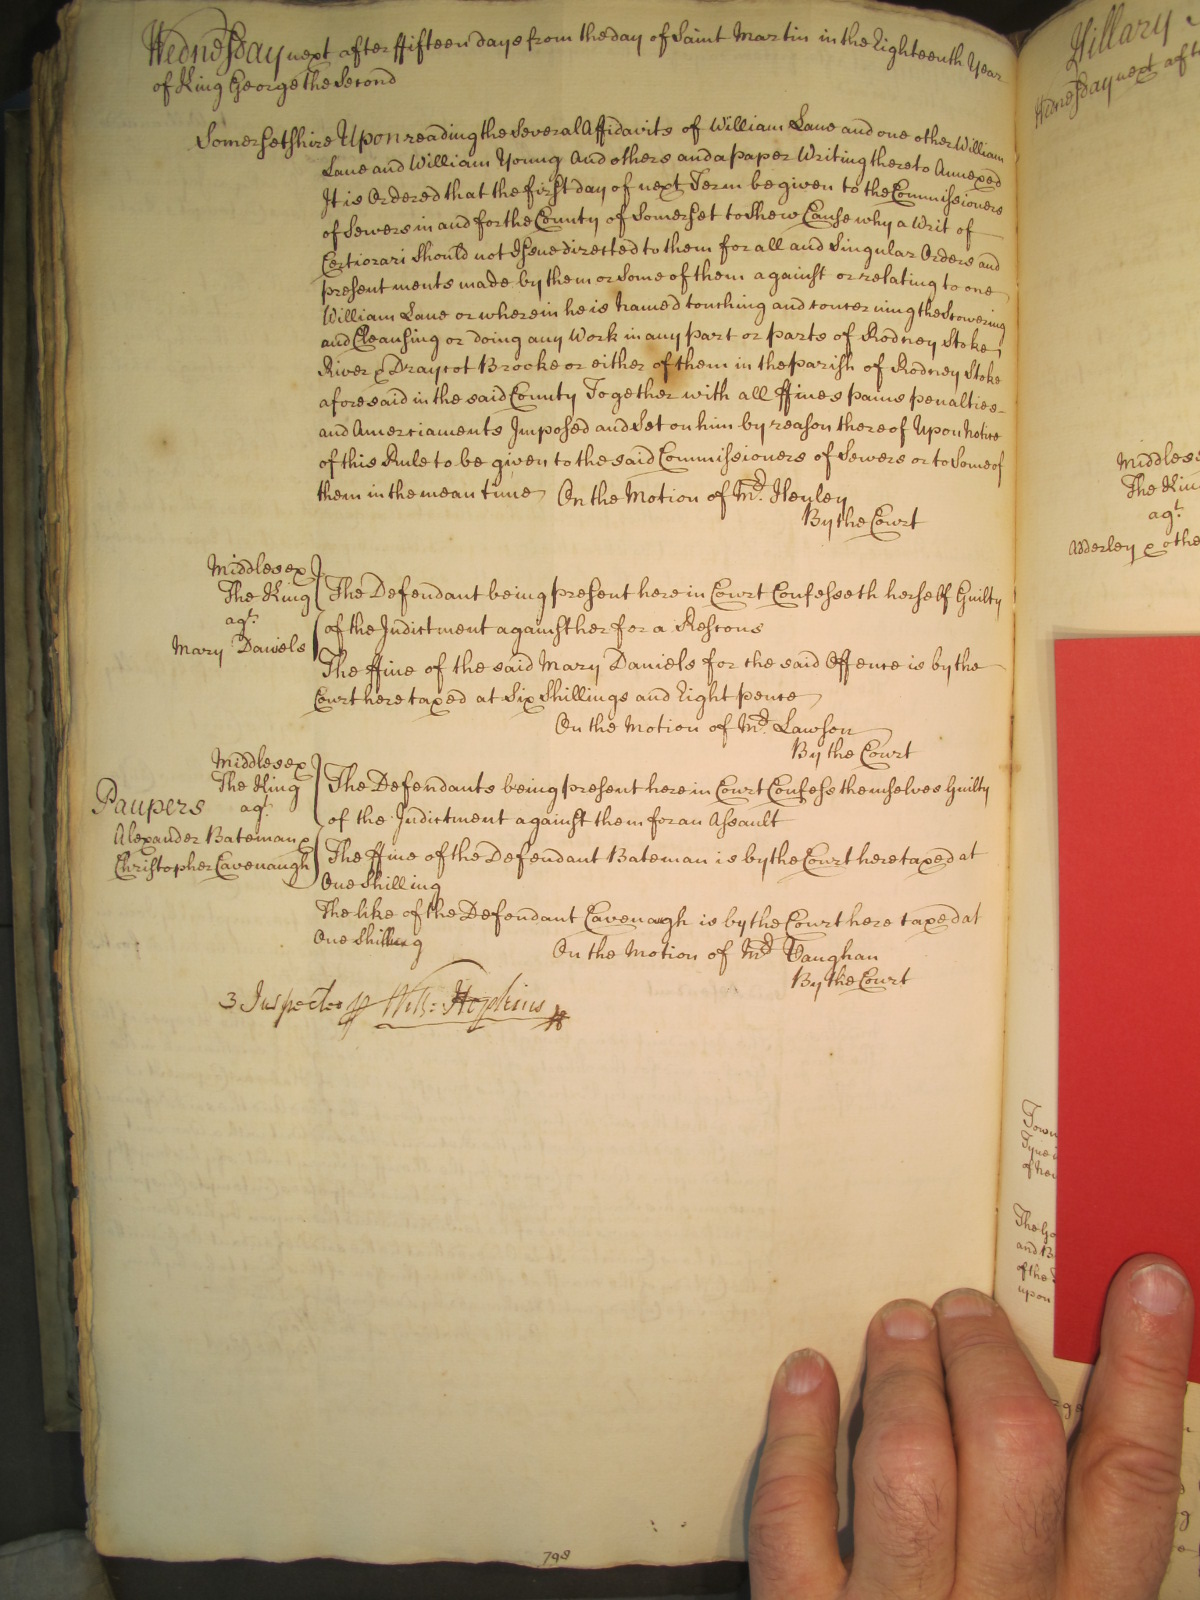 Wednesday next after ffifteen days from the day of Saint Martin in the Eighteenth Year
of King George the Second
Somersetshire Upon reading the Several Affidavits of William Lane and one other William
Lane and William Young And others and a paper Writing thereto Annexed
It is Ordered that the first day of next Term be given to the Commissioners
of Sewers in and for the County of Somerset to Shew Cause why a Writ of
Certiorari Should not Issue directed to them for all and Singular Orders and
presentments made by them or Some of them against or relating to one
William Lane or wherein he is Named touching and concerning the Scowering
and Cleansing or doing any Work in any part or parts of Rodney Stoke
River & Draycot Brooke or either of them in the parish of Rodney Stoke
aforesaid in the said County Together with all ffines pains penalties
and Amerciaments Imposed and Set on him by reason thereof Upon Notice
of this Rule to be given to the said Commissioners of Sewers or to Some of
them in the mean time On the Motion of Mr. Henley
By the Court
Middlesex
The King
agt.
Mary Daniels
The Defendant being present here in Court Confesseth herself Guilty
of the Indictment against her for a Rescous
The ffine of the said Mary Daniels for the said Offence is by the
Court here taxed at Six Shillings and Eight pence
On the Motion of Mr. Lawson
By the Court
Middlesex
The King
Paupers agt.
Alexander Bateman &
Christopher Cavenaugh
The Defendants being present here in Court Confess themselves Guilty
of the Indictment against them for an Assault
The ffine of the Defendant Bateman is by the Court here taxed at
One Shilling
The like of the Defendant Cavenaugh is by the Court here taxed at
One Shilling On the Motion of Mr. Vaughan
By the Court
3 Inspected p Hopkins
798
Hillary
Wednesday next aft
Middlesex
The Kin
agt.
Adderley & othe
Town
Tyne
of New
The
and B
of the
upon